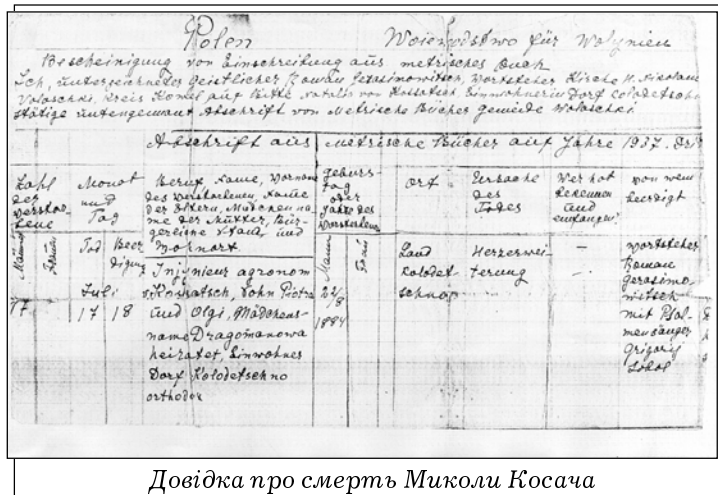 Polen Woiewodstwo für Wolynien
Bescheinigung von Einschreibung aus metrisches Buch
Ich, unterzeichneter Geistlicher Roman Gerasimowitsch, Vorsteher Kirche H. Nikolaus
Woloschki, Kreis Kowel auf Bitte Natalie von Kossatsch Einwohnerin Dorf Colodetschno
stätige untengenannt Abschrift von Metrische Bücher Gemeide Woloschki
Abschrift aus Metrische Bücher auf Jahre 1937.
Zahl
der
Monat
und
Tag
Beruf, Name, Vorname
des Verstorbenen, Name
der Eltern, Mädchenna-
me der Mutter, Bür-
gereigne Stand, und
Wohnort
geburs-
tag
oder
Jahre des
ort
Ursache
des
Todes
Wer hat
bekennen
und
empfangen?
von wem
beerdigt
Tod Beer
digung
Juli
17 18
Injynieur agronom
Kossatsch, Sohn Piotra
und Olgi, Mädchens-
name Dragomanowa
heiratet, Einwohner
Dorf Kolodetschno
orthodox
Mann
Frau
22/8
1884
Land
Kolodet-
schno
Herzerwei-
terung
–
–
Vorsteher
Roman
Gerasimo-
witsch
mit Psal-
mensänger
Grigorij
Sokol
Довідка про смерть Миколи Косача